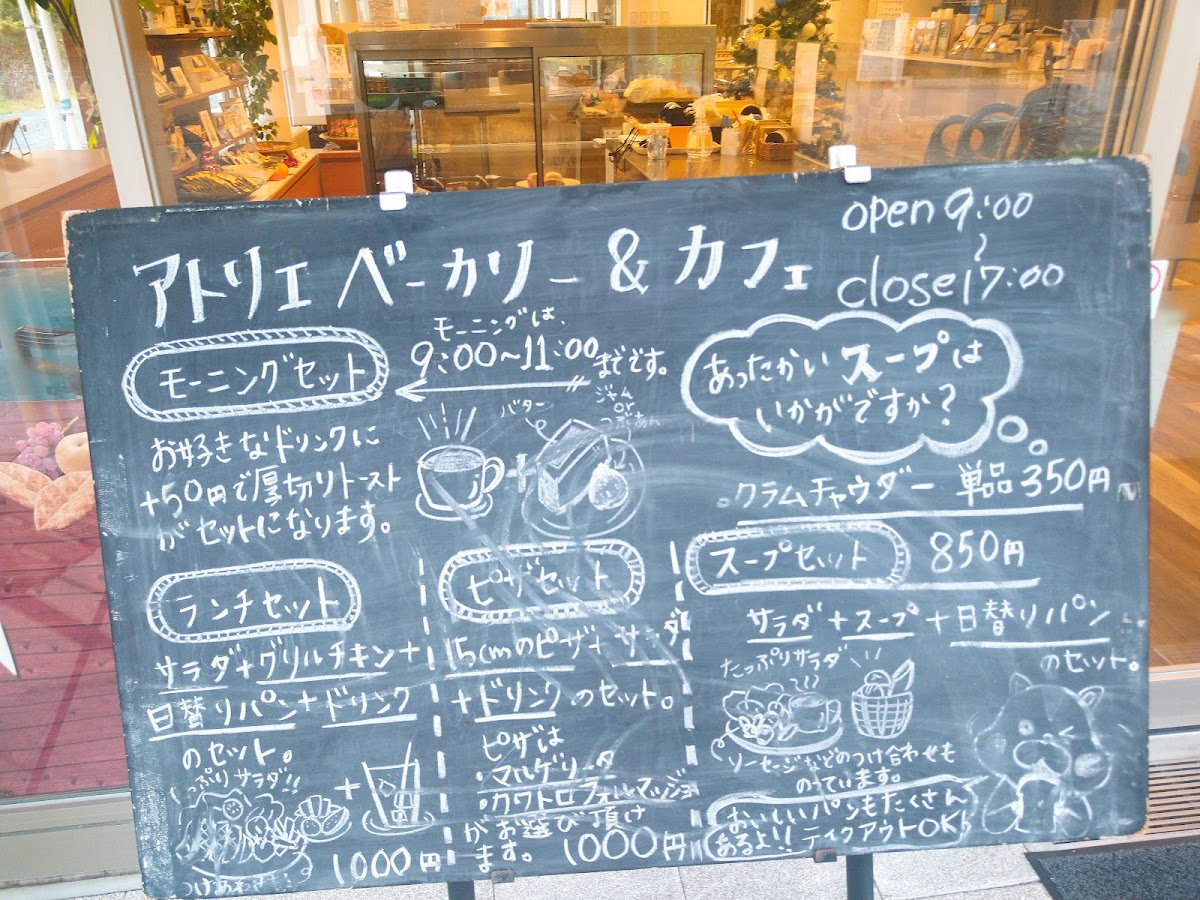 アトリエ ベーカリー & カフェ
open 9:00
〜
close 17:00
モーニングセット
モーニングは、
9:00～11:00までです。
お好きなドリンクに
+50円で厚切りトースト
がセットになります。
バター
ジャム
or
つぶあん
あったかいスープは
いかがですか?
クラムチャウダー 単品350円
スープセット 850円
サラダ+スープ+日替りパン
のセット。
たっぷりサラダ
ソーセージなどのつけ合わせも
のっています。
おいしいパンもたくさん
あるよ!! テイクアウトOK!
ランチセット
サラダ+グリルチキン+
日替りパン+ドリンク
のセット。
っぷりサラダ!!
1000円
ピザセット
15cmのピザ+サラダ
+ドリンクのセット。
ピザは
・マルゲリータ
・クワトロフォルマッジョ
がお選び頂け
ます。 1000円